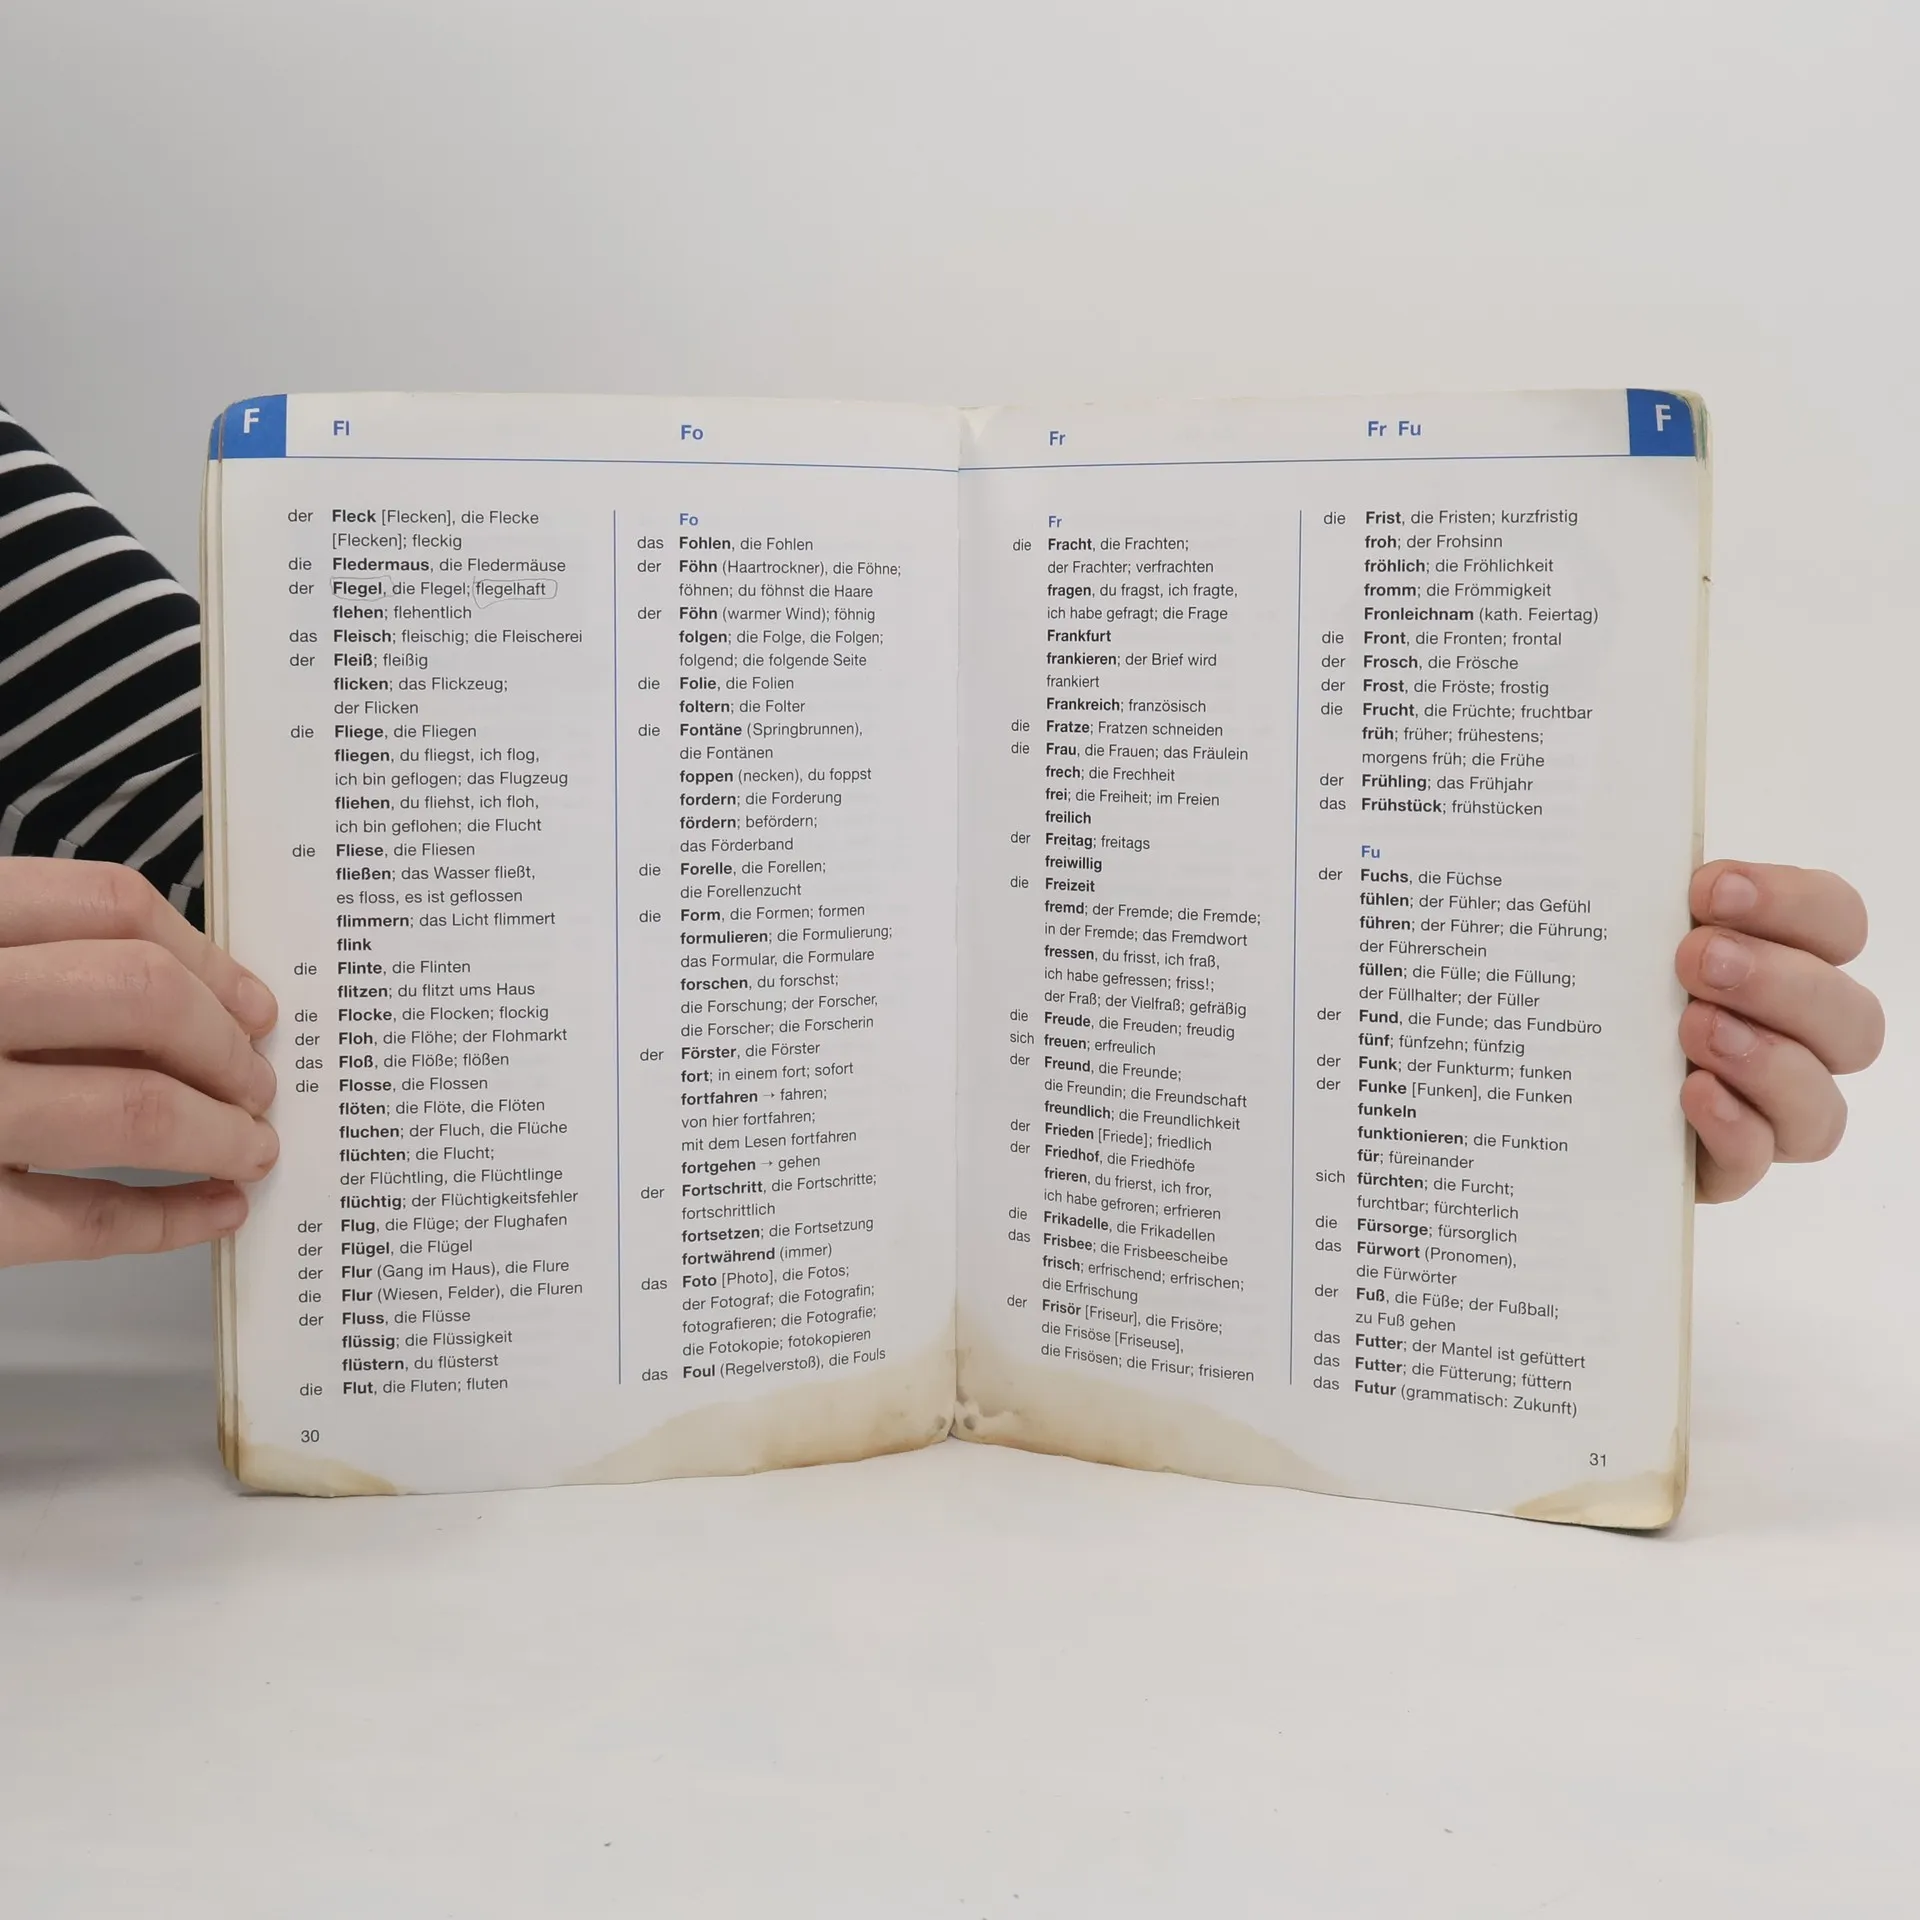 F
Fl
Fo
der Fleck [Flecken], die Flecke
[Flecken]; fleckig
die Fledermaus, die Fledermäuse
der Flegel, die Flegel; flegelhaft
flehen; flehentlich
das Fleisch; fleischig; die Fleischerei
der Fleiß; fleißig
flicken; das Flickzeug;
der Flicken
die Fliege, die Fliegen
fliegen, du fliegst, ich flog,
ich bin geflogen; das Flugzeug
fliehen, du fliehst, ich floh,
ich bin geflohen; die Flucht
die Fliese, die Fliesen
fließen; das Wasser fließt,
es floss, es ist geflossen
flimmern; das Licht flimmert
flink
die Flinte, die Flinten
flitzen; du flitzt ums Haus
die Flocke, die Flocken; flockig
der Floh, die Flöhe; der Flohmarkt
das Floß, die Flöße; flößen
die Flosse, die Flossen
flöten; die Flöte, die Flöten
fluchen; der Fluch, die Flüche
flüchten; die Flucht;
der Flüchtling, die Flüchtlinge
flüchtig; der Flüchtigkeitsfehler
der Flug, die Flüge; der Flughafen
der Flügel, die Flügel
der Flur (Gang im Haus), die Flure
die Flur (Wiesen, Felder), die Fluren
der Fluss, die Flüsse
flüssig; die Flüssigkeit
flüstern, du flüsterst
die Flut, die Fluten; fluten
30
Fo
das Fohlen, die Fohlen
der Föhn (Haartrockner), die Föhne;
föhnen; du föhnst die Haare
der Föhn (warmer Wind); föhnig
folgen; die Folge, die Folgen;
folgend; die folgende Seite
die Folie, die Folien
foltern; die Folter
die Fontäne (Springbrunnen),
die Fontänen
foppen (necken), du foppst
fordern; die Forderung
fördern; befördern;
das Förderband
die Forelle, die Forellen;
die Forellenzucht
die Form, die Formen; formen
formulieren; die Formulierung;
das Formular, die Formulare
forschen, du forschst;
die Forschung; der Forscher,
die Forscher; die Forscherin
der Förster, die Förster
fort; in einem fort; sofort
fortfahren → fahren;
von hier fortfahren;
mit dem Lesen fortfahren
fortgehen → gehen
der Fortschritt, die Fortschritte;
fortschrittlich
fortsetzen; die Fortsetzung
fortwährend (immer)
das Foto [Photo], die Fotos;
der Fotograf; die Fotografin;
fotografieren; die Fotografie;
die Fotokopie; fotokopieren
das Foul (Regelverstoß), die Fouls
Fr
Fr Fu
F
Fr
die Fracht, die Frachten;
der Frachter; verfrachten
fragen, du fragst, ich fragte,
ich habe gefragt; die Frage
Frankfurt
frankieren; der Brief wird
frankiert
Frankreich; französisch
die Fratze; Fratzen schneiden
die Frau, die Frauen; das Fräulein
frech; die Frechheit
frei; die Freiheit; im Freien
freilich
der Freitag; freitags
freiwillig
die Freizeit
fremd; der Fremde; die Fremde;
in der Fremde; das Fremdwort
fressen, du frisst, ich fraß,
ich habe gefressen; friss!;
der Fraß; der Vielfraß; gefräßig
die Freude, die Freuden; freudig
sich freuen; erfreulich
der Freund, die Freunde;
die Freundin; die Freundschaft
freundlich; die Freundlichkeit
der Frieden [Friede]; friedlich
der Friedhof, die Friedhöfe
frieren, du frierst, ich fror,
ich habe gefroren; erfrieren
die Frikadelle, die Frikadellen
das Frisbee; die Frisbeescheibe
frisch; erfrischend; erfrischen;
die Erfrischung
der Frisör [Friseur], die Frisöre;
die Frisöse [Friseuse],
die Frisösen; die Frisur; frisieren
die Frist, die Fristen; kurzfristig
froh; der Frohsinn
fröhlich; die Fröhlichkeit
fromm; die Frömmigkeit
Fronleichnam (kath. Feiertag)
die Front, die Fronten; frontal
der Frosch, die Frösche
der Frost, die Fröste; frostig
die Frucht, die Früchte; fruchtbar
früh; früher; frühestens;
morgens früh; die Frühe
der Frühling; das Frühjahr
das Frühstück; frühstücken
Fu
der Fuchs, die Füchse
fühlen; der Fühler; das Gefühl
führen; der Führer; die Führung;
der Führerschein
füllen; die Fülle; die Füllung;
der Füllhalter; der Füller
der Fund, die Funde; das Fundbüro
fünf; fünfzehn; fünfzig
der Funk; der Funkturm; funken
der Funke [Funken], die Funken
funkeln
funktionieren; die Funktion
für; füreinander
sich fürchten; die Furcht;
furchtbar; fürchterlich
die Fürsorge; fürsorglich
das Fürwort (Pronomen),
die Fürwörter
der Fuß, die Füße; der Fußball;
zu Fuß gehen
das Futter; der Mantel ist gefüttert
das Futter; die Fütterung; füttern
das Futur (grammatisch: Zukunft)
31